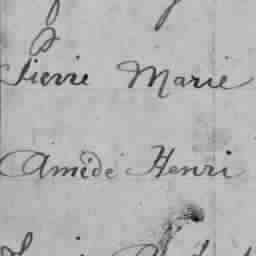 Pierre Marie
Amédé Henri